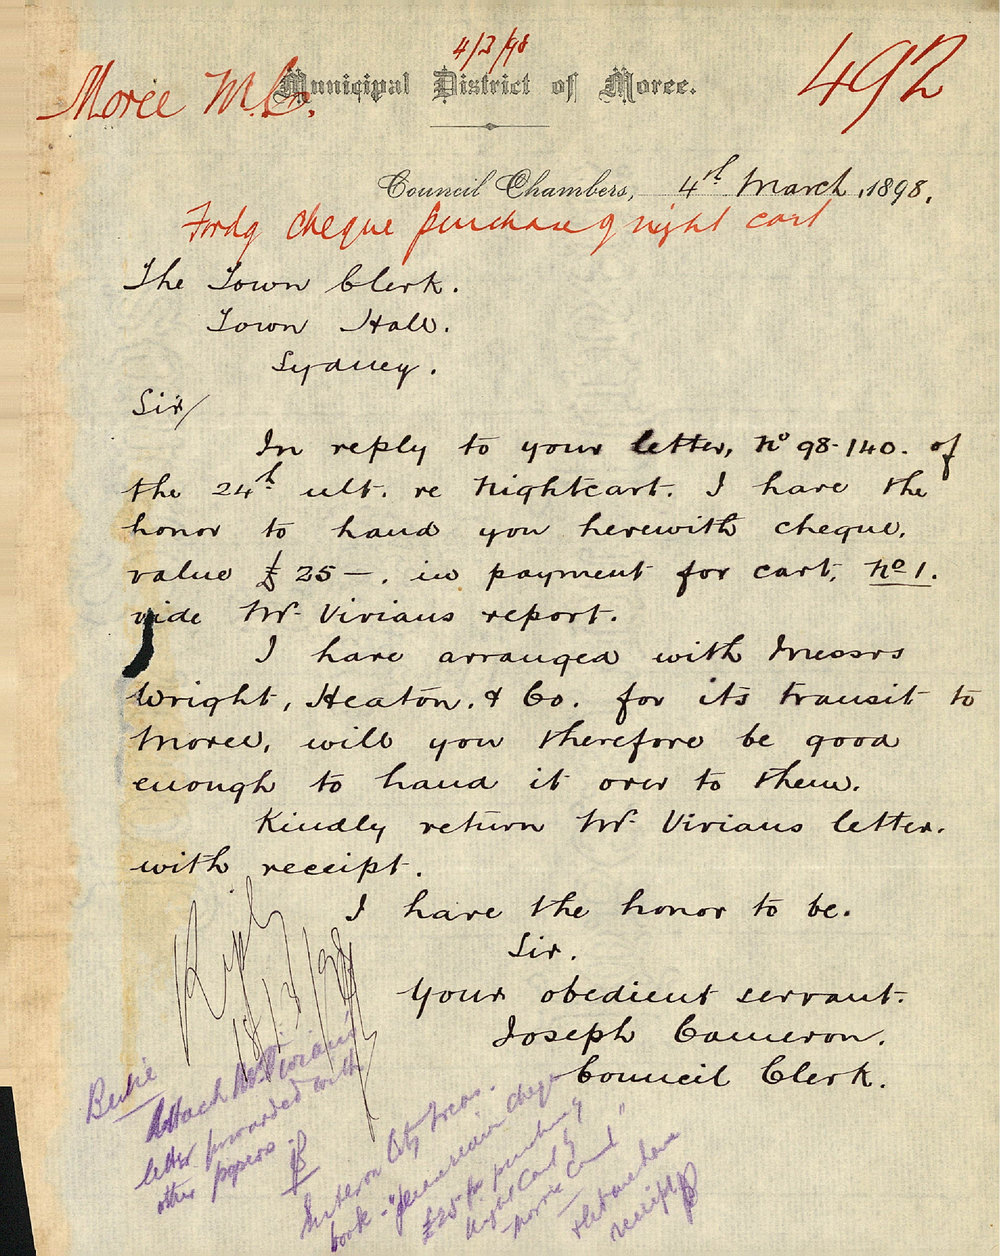 4/3/98
Moree M.C.
Municipal District of Moree.
492
Council Chambers, 4th March, 1898.
Fordg cheque purchase of night cart
The Town Clerk.
Town Hall.
Sydney.
Sir/
In reply to your letter, No 98-140. of
the 24th ult. re Nightcart. I have the
honor to hand you herewith cheque,
value £25—. in payment for cart, No 1.
vide Mr Vivians report.
I have arranged with Messrs
Wright, Heaton, & Co. for its transit to
Moree, will you therefore be good
enough to hand it over to them.
Kindly return Mr Vivians letter.
with receipt.
I have the honor to be.
Sir.
Your obedient servant.
Joseph Cameron.
Council Clerk.
Reply
18/3/98
Attach Mr Vivian's
letter forwarded with
other papers
City Treas.
book - "Please receive cheque
£25 for purchase
Night Cart by
Moree Council"
receipt